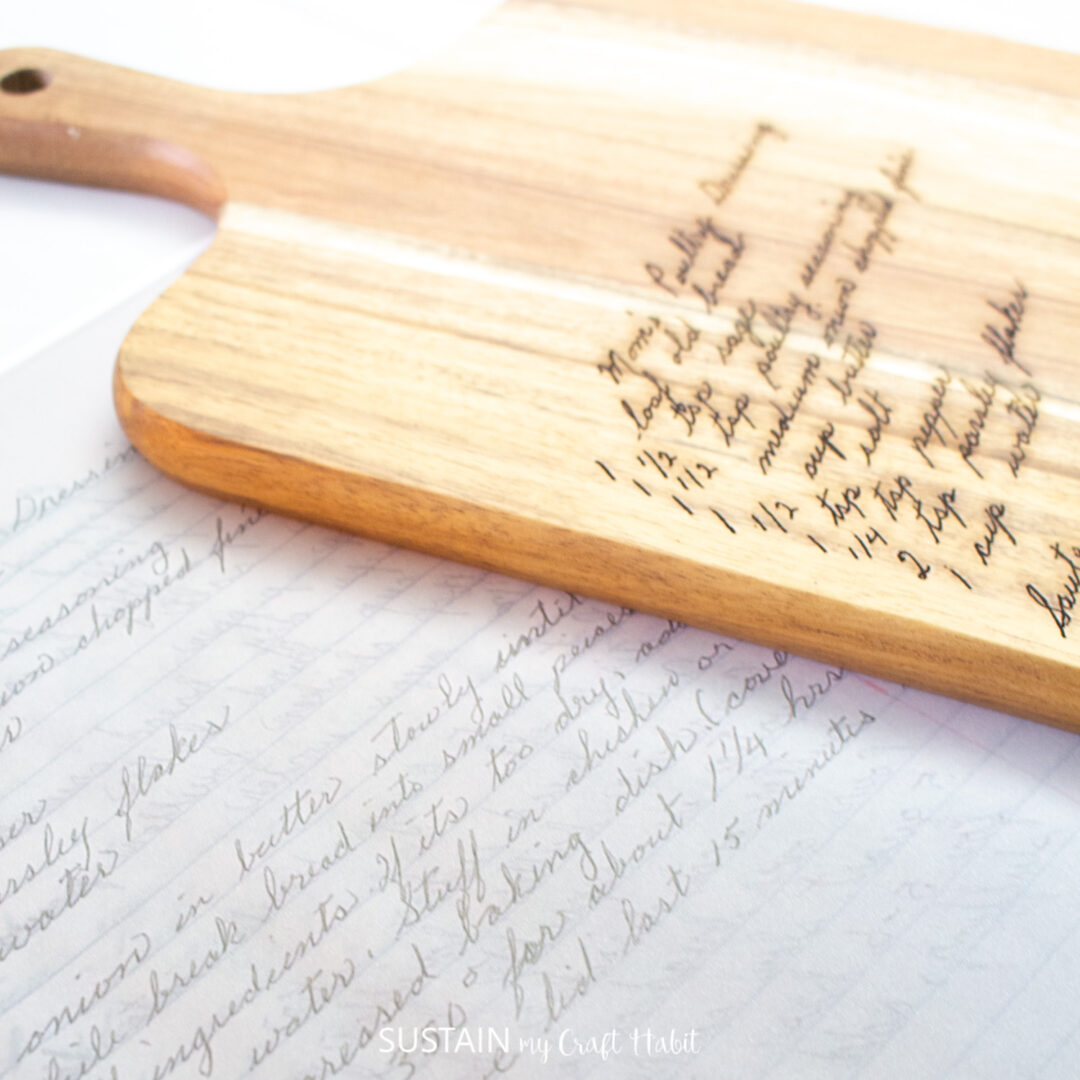 Mom's Poultry Dressing
1 loaf old bread
1 1/2 tsp sage
1 1/2 tsp poultry seasoning
1 medium onion chopped fine
1/2 cup butter
1 tsp salt
1/4 tsp pepper
2 tsp parsley flakes
1 cup water
Saute
Dressin
seasoning
ion chopped fine
er
arsley flakes
water
onion in butter slowly until
break bread into small peices
ingredients. If its too dry, ad
water. Stuff in chicken or
greased baking dish. (cove
350° for about 1 1/4 hrs
lid last 15 minutes
SUSTAIN my Craft Habit